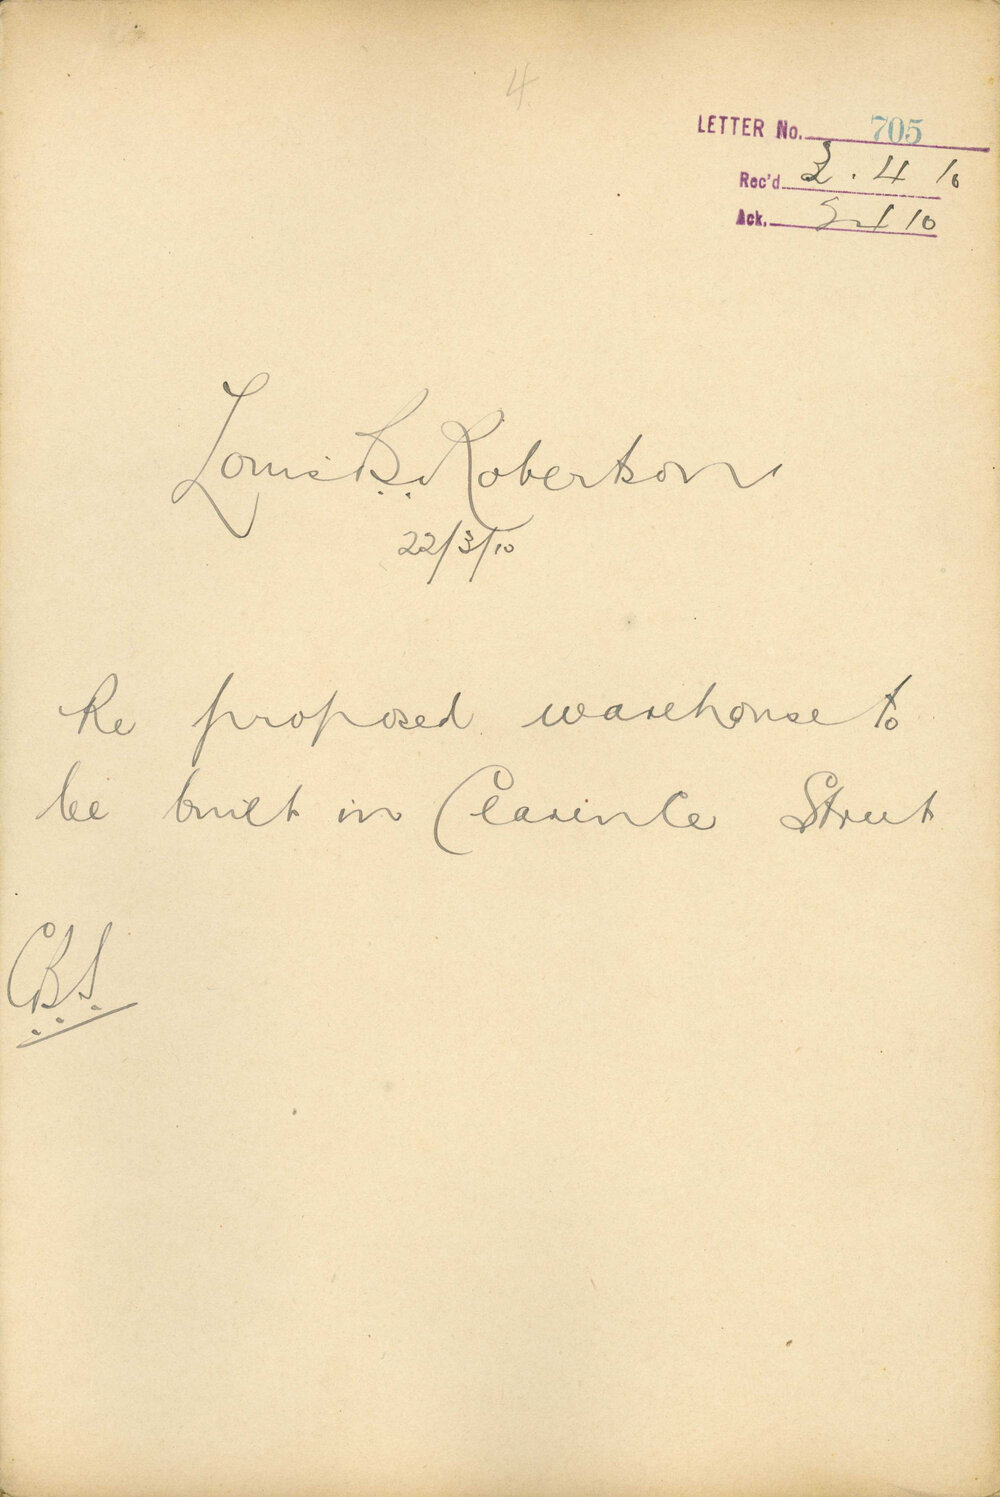 4
LETTER No. 705
Rec'd 2.4 10
Ack. 10
Louis B. Robertson
22/3/10
Re proposed warehouse to
be built in Clarence Street
CBS